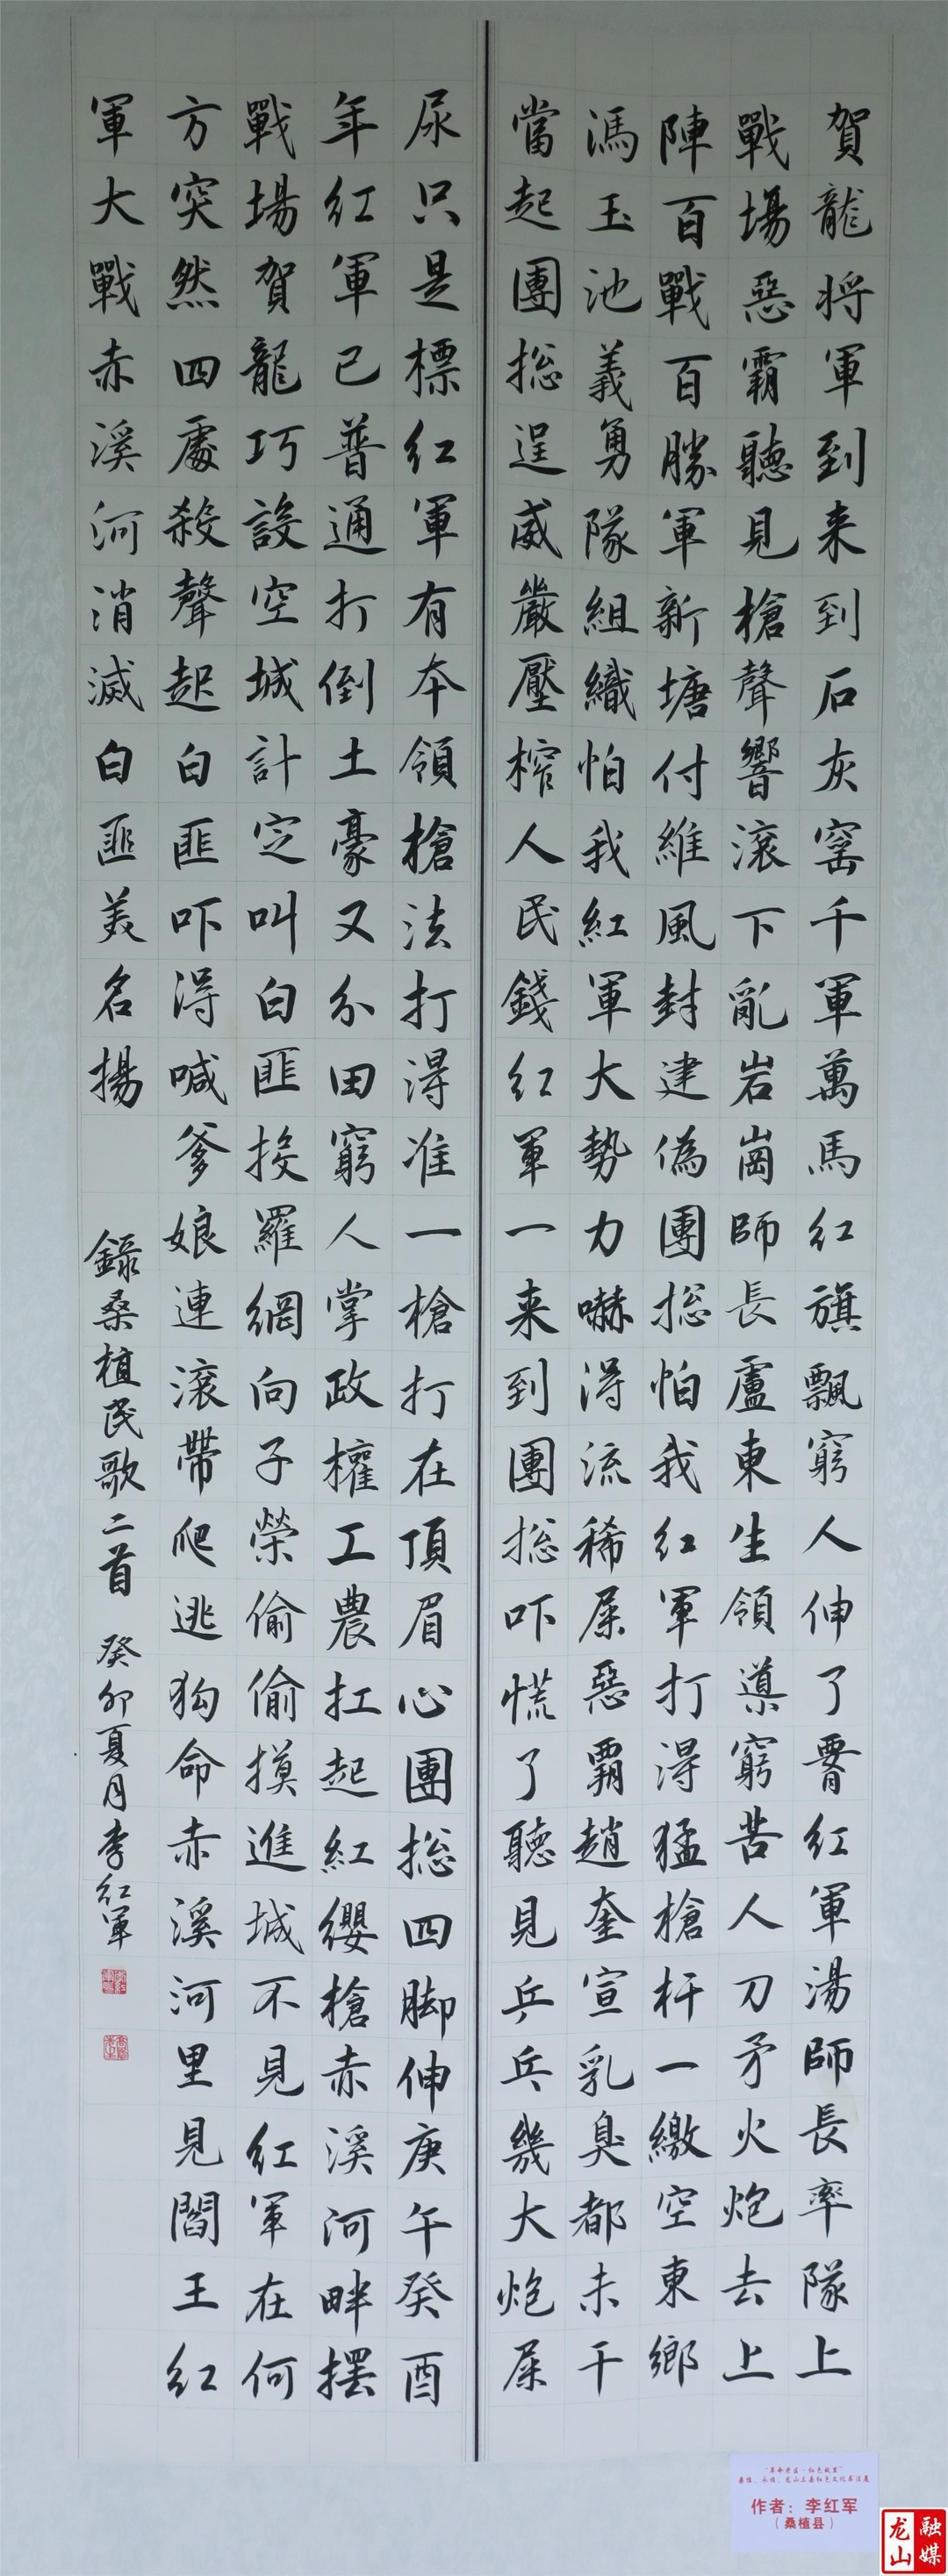 賀龍将軍到来到石灰窑千軍萬馬紅旗飄窮人伸了腰紅軍湯師長率隊上
戰場惡霸聽見槍聲響滚下亂岩崗師長盧東生領導窮苦人刀矛火炮去上
陣百戰百勝軍新塘付維風封建偽團揔怕我紅軍打得猛槍杆一繳空東鄉
馮玉池義勇隊組織怕我紅軍大勢力嚇得流稀屎惡霸趙奎宣乳臭都未干
當起團揔逞威嚴壓榨人民錢紅軍一来到團揔吓慌了聽見乒乓幾大炮屎
尿只是標紅軍有本領槍法打得准一槍打在頂眉心團揔四脚伸庚午癸酉
年紅軍已普通打倒土豪又分田窮人掌政權工農扛起紅纓槍赤溪河畔擺
戰場賀龍巧設空城計定叫白匪投羅網向子榮偷偷摸進城不見紅軍在何
方突然四處殺聲起白匪吓得喊爹娘連滚帶爬逃狗命赤溪河里見閻王紅
軍大戰赤溪河消滅白匪美名揚
錄桑植民歌二首 癸卯夏月李紅軍
“革命老区·红色故里”
桑植、永顺、龙山三县红色文化书法展
作者：李红军
（桑植县）
龙山
融媒